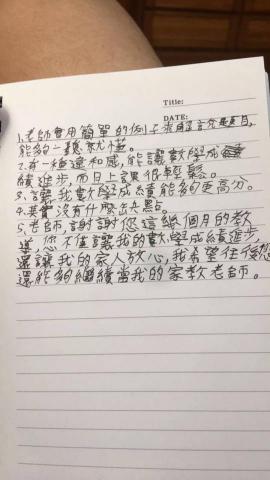 Title:
DATE:
1.老師會用簡單的例子來解說題目,
能夠一聽就懂。
2.有一種違和感,能讓數學成
績進步,而且上課很輕鬆。
3.讓我數學成績能夠更高分。
4.其實沒有什麼缺點。
5.老師,謝謝您這幾個月的教
導,您不僅讓我的數學成績進步,
還讓我的家人放心,我希望往後您
還能夠繼續當我的家教老師。